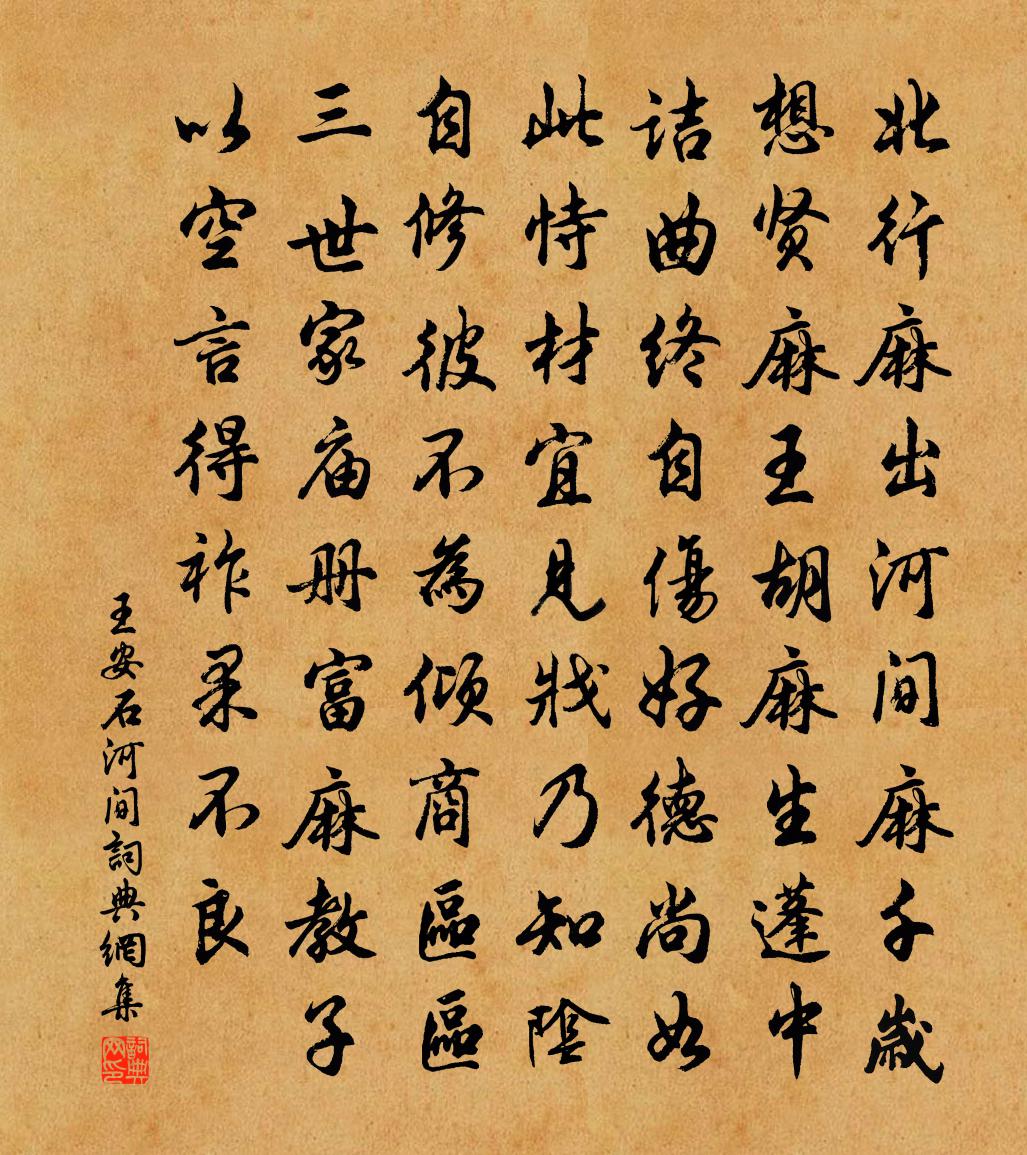 北行麻出河间麻千歲
想贤麻王胡麻生蓬中
詰曲终自傷好德尚如
此恃材宜見戕乃知陰
自修彼不為傾商區區
三世家庙册富麻教子
以空言得祚果不良
王安石河间詞典網集
詞典网印